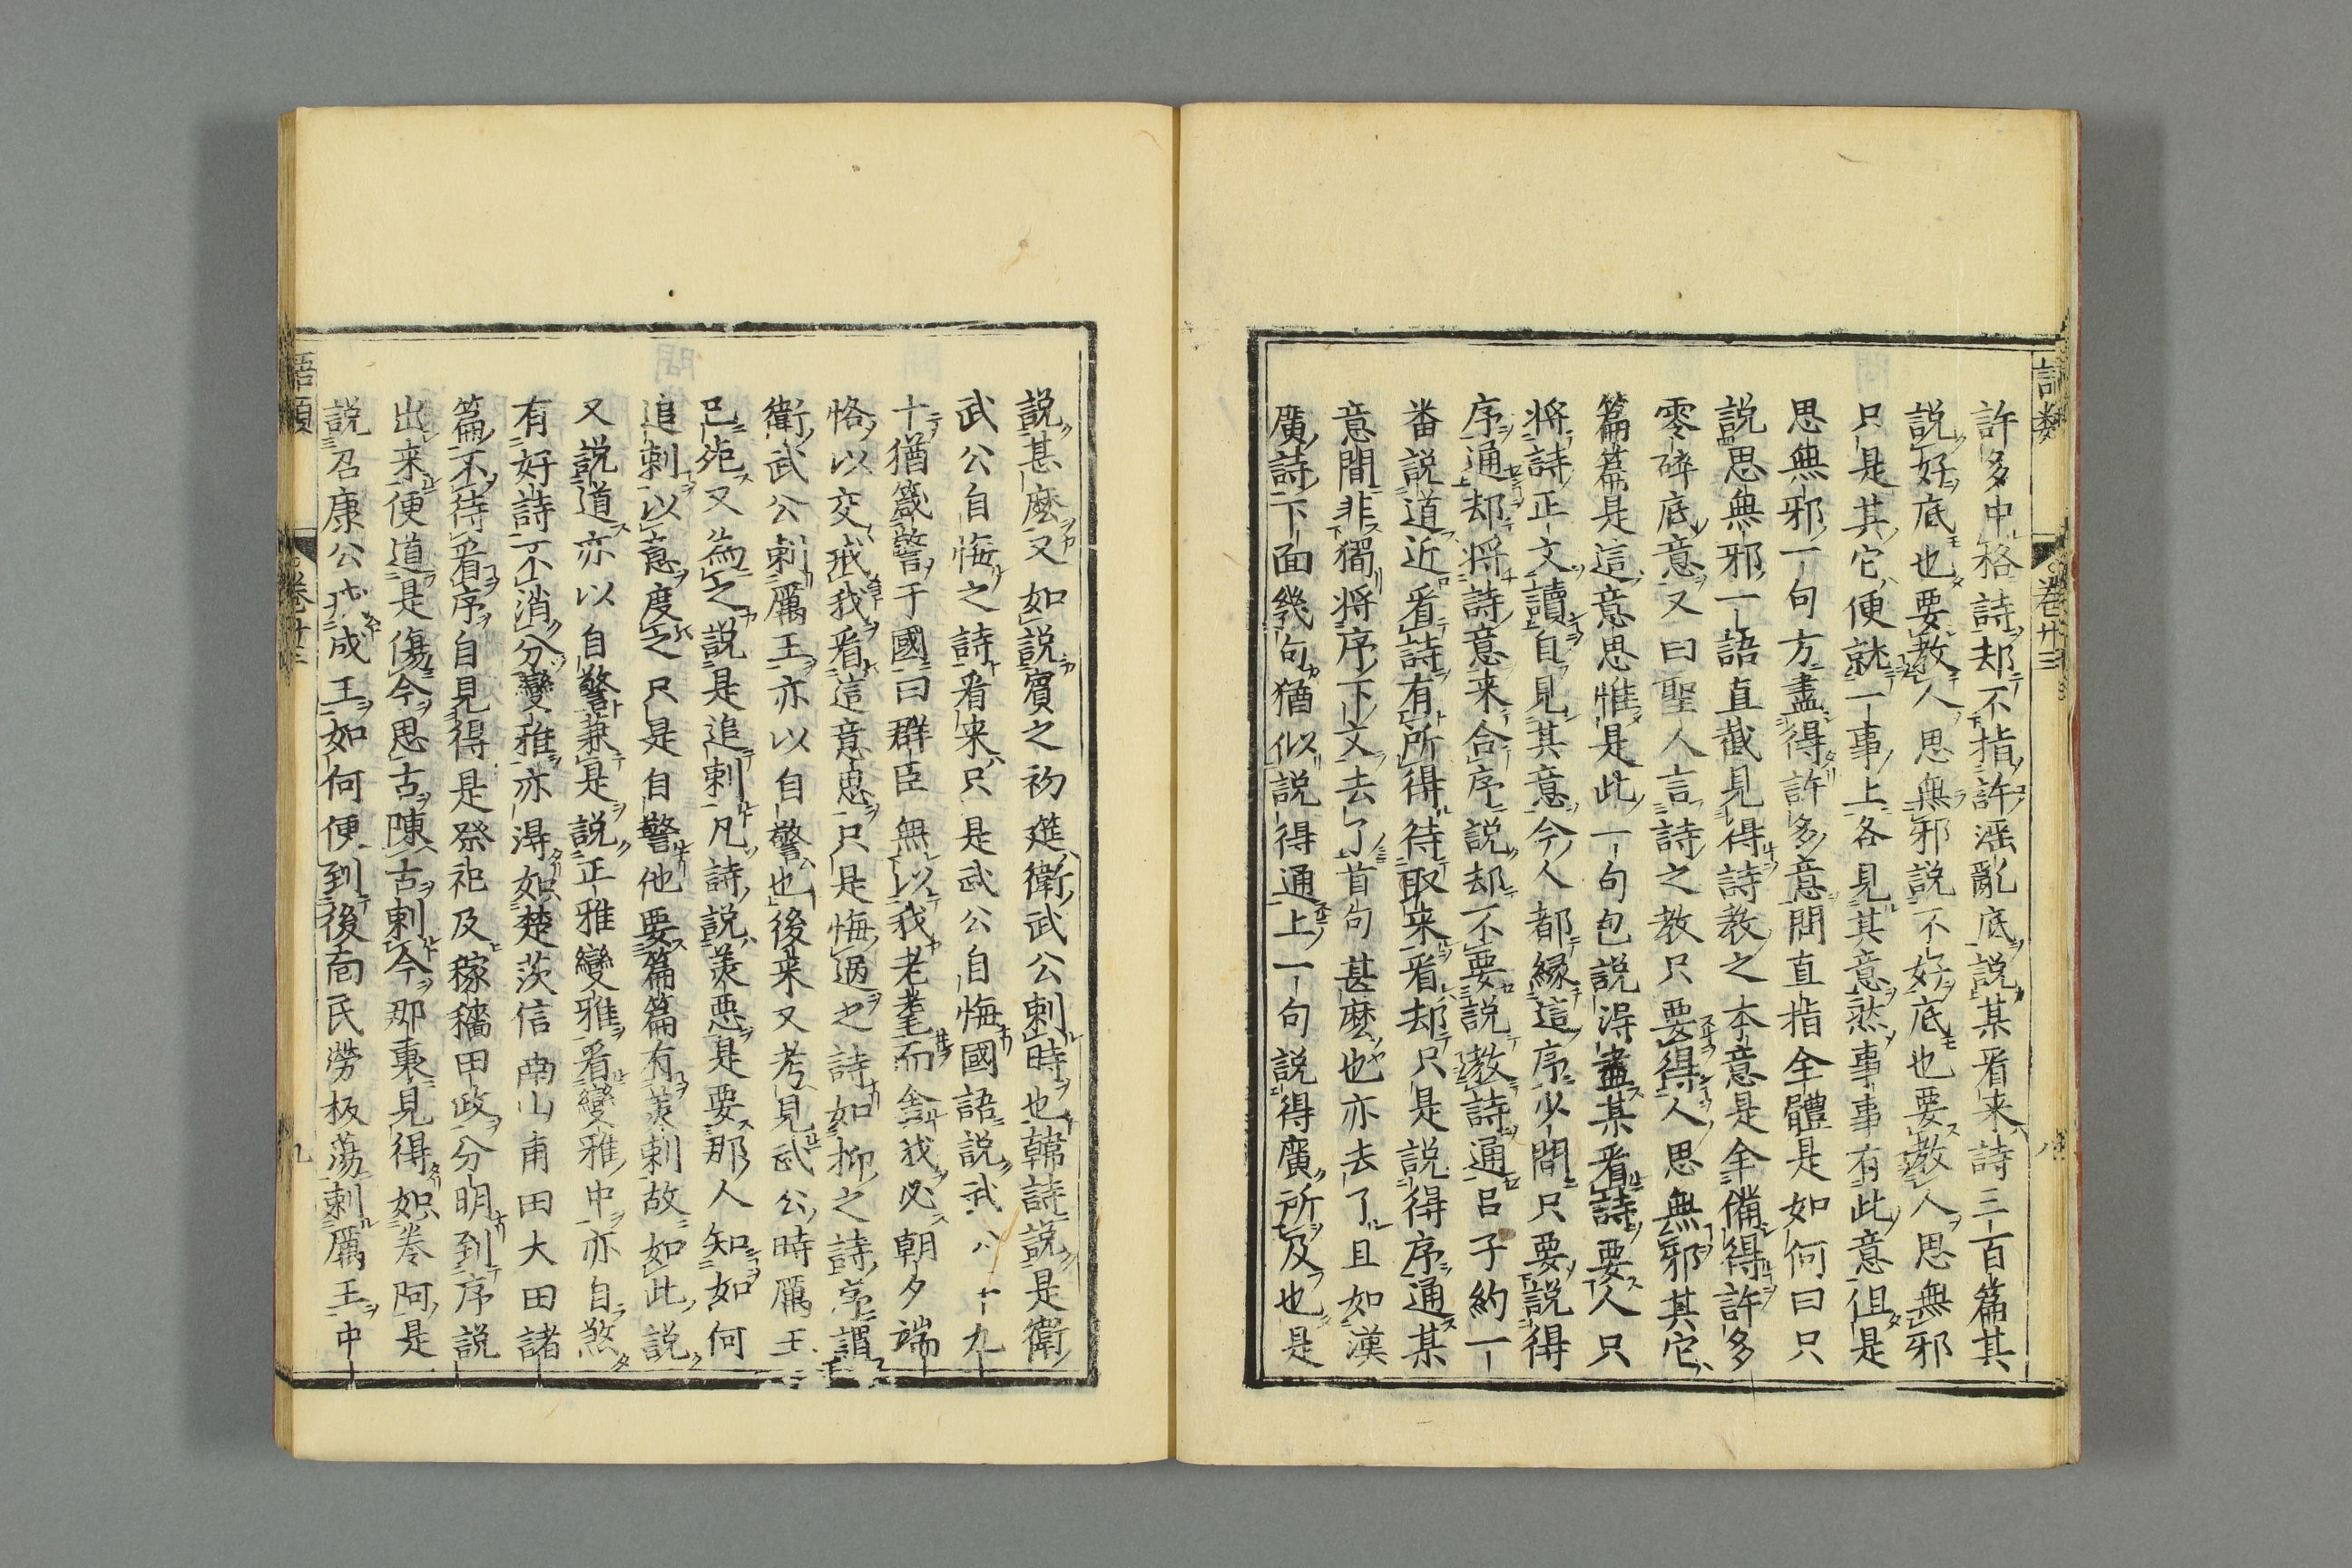 語類
卷廿三
八
許多中格詩却不指許淫亂底說某看来詩三百篇其
說好底也要教人思無邪説不好底也要教人思無邪
只是其它便就一事上各見其意然事事有此意但是
思無邪一句方盡得許多意問直指全體是如何曰只
説思無邪一語直截見得詩教之本意是全備得許多
零碎底意又曰聖人言詩之教只要得人思無邪其它
篇篇是這意思惟是此一句包説得盡某看詩要人只
将詩正文讀自見其意今人都縁這序少間只要説得
序通却将詩意来合序説却不要説教詩通呂子約一
番説道近看詩有所得待取来看却只是説得序通某
意間非獨将序下文去了首句甚麽也亦去了且如漢
廣詩下面幾句猶似説得通上一句説得廣所及也是
説甚麽又如説賓之初筵衛武公刺時也韓詩説是衛
武公自悔之詩看来只是武公自悔國語説武公九
十猶箴警于國曰群臣無以我老耄而舎我必朝夕端
恪以交戒我看這意思只是悔過之詩如抑之詩序謂
衛武公刺厲王亦以自警也後来又考見武公時厲王
已死又為之説是追刺凡詩説美惡是要那人知如何
追刺以意度之只是自警他要篇篇有美刺故如此説
又説道亦以自警兼是説正雅變雅看變雅中亦自煞
有好詩不消分變雅亦得如楚茨信南山甫田大田諸
篇不待看序自見得是祭祀及稼穡田政分明到序説
出来便道是傷今思古陳古刺今那裏見得如卷阿是
説召康公戒成王如何便到後面民勞板蕩刺厲王中
語類
卷廿三
九